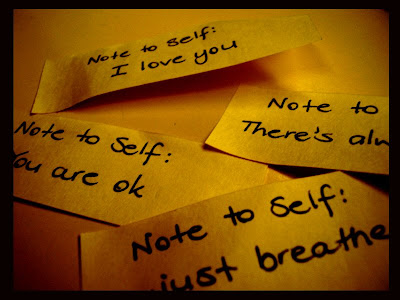 Note to Self:
I love you
Note to
There's
Note to Self:
You are ok
Note to Self:
just breathe